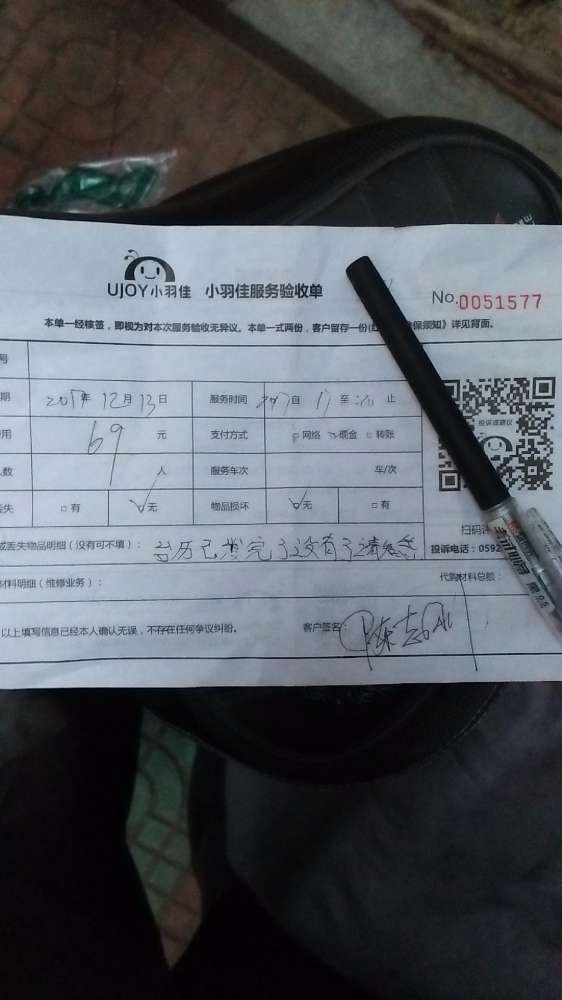 UJOY小羽佳 小羽佳服务验收单
No.0051577
本单一经核签,即视为对本次服务验收无异议。本单一式两份,客户留存一份 保须知》详见背面。
号
期 2017年12月13日 服务时间 自 17 至 止
用 69 元 支付方式 网络 现金 转账
投诉或建议
人数 人 服务车次 车/次
丢失 有 无 物品损坏 无 有
扫码
或丢失物品明细(没有可不填): 台历已发完了没有了
投诉电话:0592
材料明细(维修业务): 代购材料总额:
以上填写信息已经本人确认无误,不存在任何争议纠纷。 客户签名: 陈